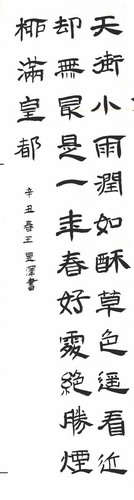 天街小雨潤如酥草色遥看近
却無最是一年春好處絕勝煙
柳滿皇都
辛丑春王澤書